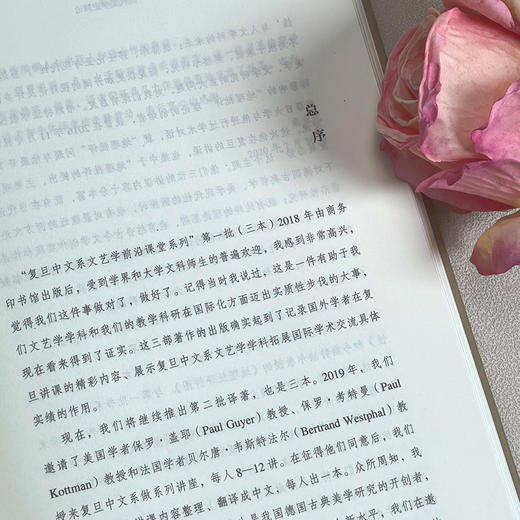 总序
“复旦中文系文艺学前沿课堂系列”第一批（三本）2018年由商务
印书馆出版后，受到学界和大学文科师生的普遍欢迎，我感到非常高兴，
觉得我们这件事做对了，做好了。记得当时我说过，这是一件有助于我
们文艺学学科和我们的教学科研在国际化方面迈出实质性步伐的大事，
现在看来得到了证实。这三部著作的出版确实起到了记录国外学者在复
旦讲课的精彩内容、展示复旦中文系文艺学学科拓展国际学术交流具体
实绩的作用。
现在，我们将继续推出第二批译著，也是三本。2019年，我们
邀请了美国学者保罗·盖耶（Paul Guyer）教授、保罗·考特曼（Paul
Kottman）教授和法国学者贝尔唐·韦斯特法尔（Bertrand Westphal）教
授来复旦中文系做系列讲座，每人8—12讲。在征得他们同意后，我们
讲课内容整理、翻译成中文，每人出一本。众所周知，我
是我国德国古典美学研究的开创者，
新水平，我们在邀